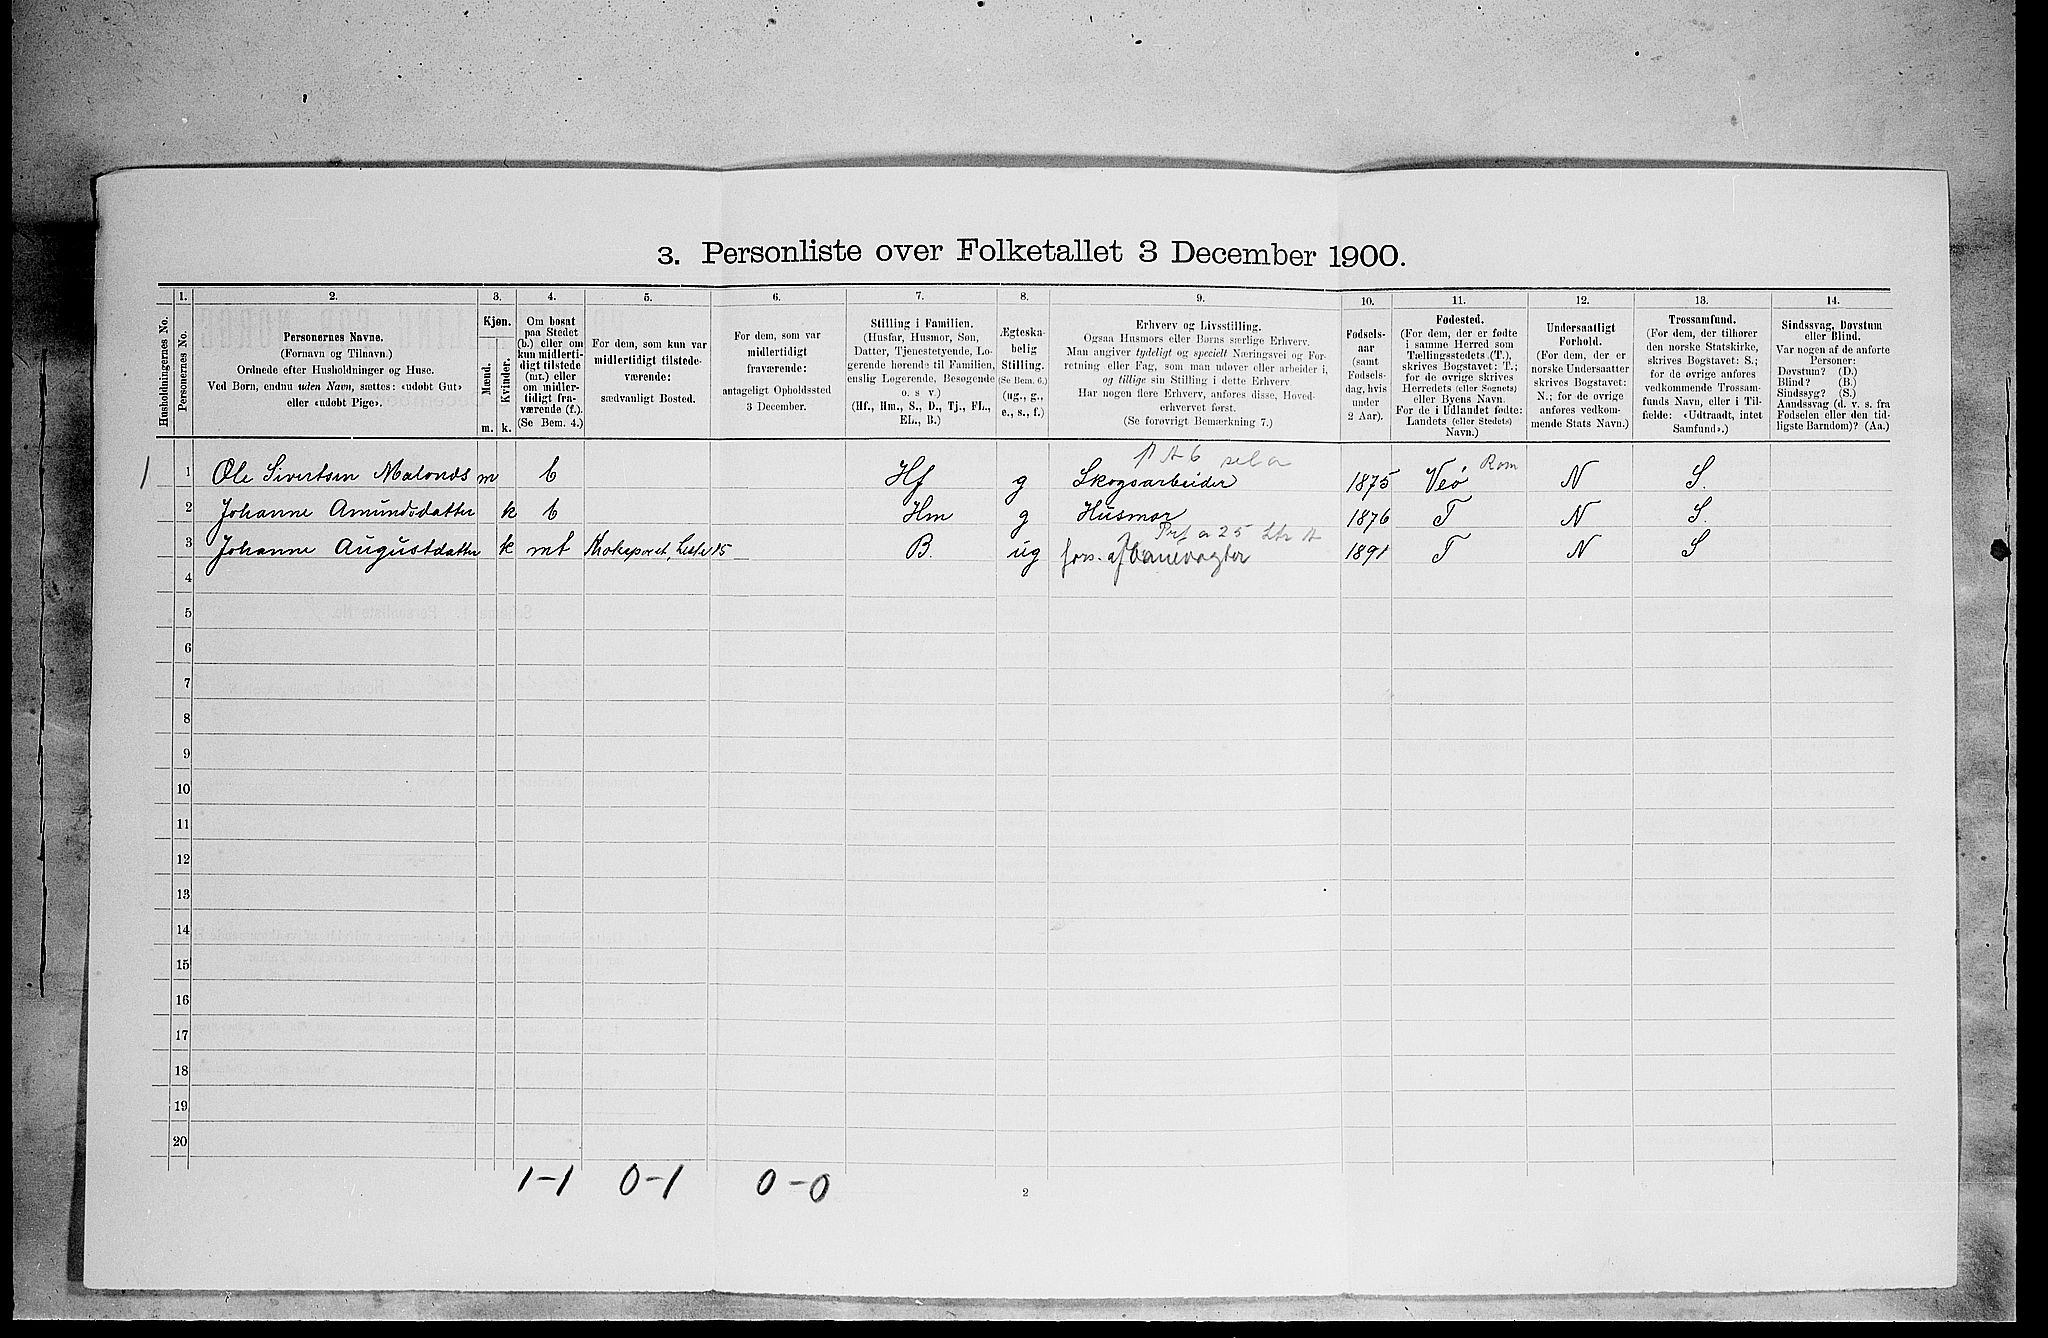 3. Personliste over Folketallet 3 December 1900.
Husholdningernes No.
1.
Personernes No.
2.
Personernes Navne.
(Fornavn og Tilnavn.)
Ordnede efter Husholdninger og Huse.
Ved Børn, endnu uden Navn, sættes: «udøbt Gut»
eller «udøbt Pige».
3.
Kjøn.
Mænd.
Kvinder.
m. k.
4.
Om bosat
paa Stedet
(b.) eller om
kun midlerti-
digt tilstede
(mt.) eller
om midler-
tidigt fra-
værende (f.).
(Se Bem. 4.)
5.
For dem, som kun var
midlertidigt tilstede-
værende:
sædvanligt Bosted.
6.
For dem, som var
midlertidigt
fraværende:
antageligt Opholdssted
3 December.
7.
Stilling i Familien.
(Husfar, Husmor, Søn,
Datter, Tjenestetyende, Lo-
gerende hørende til Familien,
enslig Logerende, Besøgende
o. s. v.)
(Hf., Hm., S., D., Tj., FL.,
EL., B.)
8.
Ægteska-
belig
Stilling.
(Se Bem. 6.)
(ug., g.,
e., s., f.)
9.
Erhverv og Livsstilling.
Ogsaa Husmors eller Børns særlige Erhverv.
Man angiver tydeligt og specielt Næringsvei og For-
retning eller Fag, som man udøver eller arbeider i,
og tillige sin Stilling i dette Erhverv.
Har nogen flere Erhverv, anføres disse, Hoved-
erhvervet først.
(Se forøvrigt Bemærkning 7.)
10.
Fødsels-
aar
(samt
Fødsels-
dag, hvis
under
2 Aar).
11.
Fødested.
(For dem, der er fødte
i samme Herred som
Tællingsstedets (T.),
skrives Bogstavet: T.;
for de øvrige skrives
Herredets (eller Sognets)
eller Byens Navn.
For de i Udlandet fødte:
Landets (eller Stedets)
Navn.)
12.
Undersaatligt
Forhold.
(For dem, der er
norske Undersaatter
skrives Bogstavet:
N.; for de øvrige
anføres vedkom-
mende Stats Navn.)
13.
Trossamfund.
(For dem, der tilhører
den norske Statskirke,
skrives Bogstavet: S.;
for de øvrige anføres
vedkommende Trossam-
funds Navn, eller i Til-
fælde: «Udtraadt, intet
Samfund».)
14.
Sindssvag, Døvstum
eller Blind.
Var nogen af de anførte
Personer:
Døvstum? (D.)
Blind? (B.)
Sindssyg? (S.)
Aandssvag (d. v. s. fra
Fødselen eller den tid-
ligste Barndom)? (Aa.)
1 1 Ole Sivertsen m b Hf g Skogsarbeider 1875 Veö Rom N S.
2 Johanne Amundsdatter k b Hm g Husmor 1876 T N S.
3 Johanne Augustdatter k mt B. ug fors. af Banevogter 1891 T N S
4
5
6
7
8
9
10
11
12
13
14
15
16
17
18
19
20
1-1 0-1 0-0
2